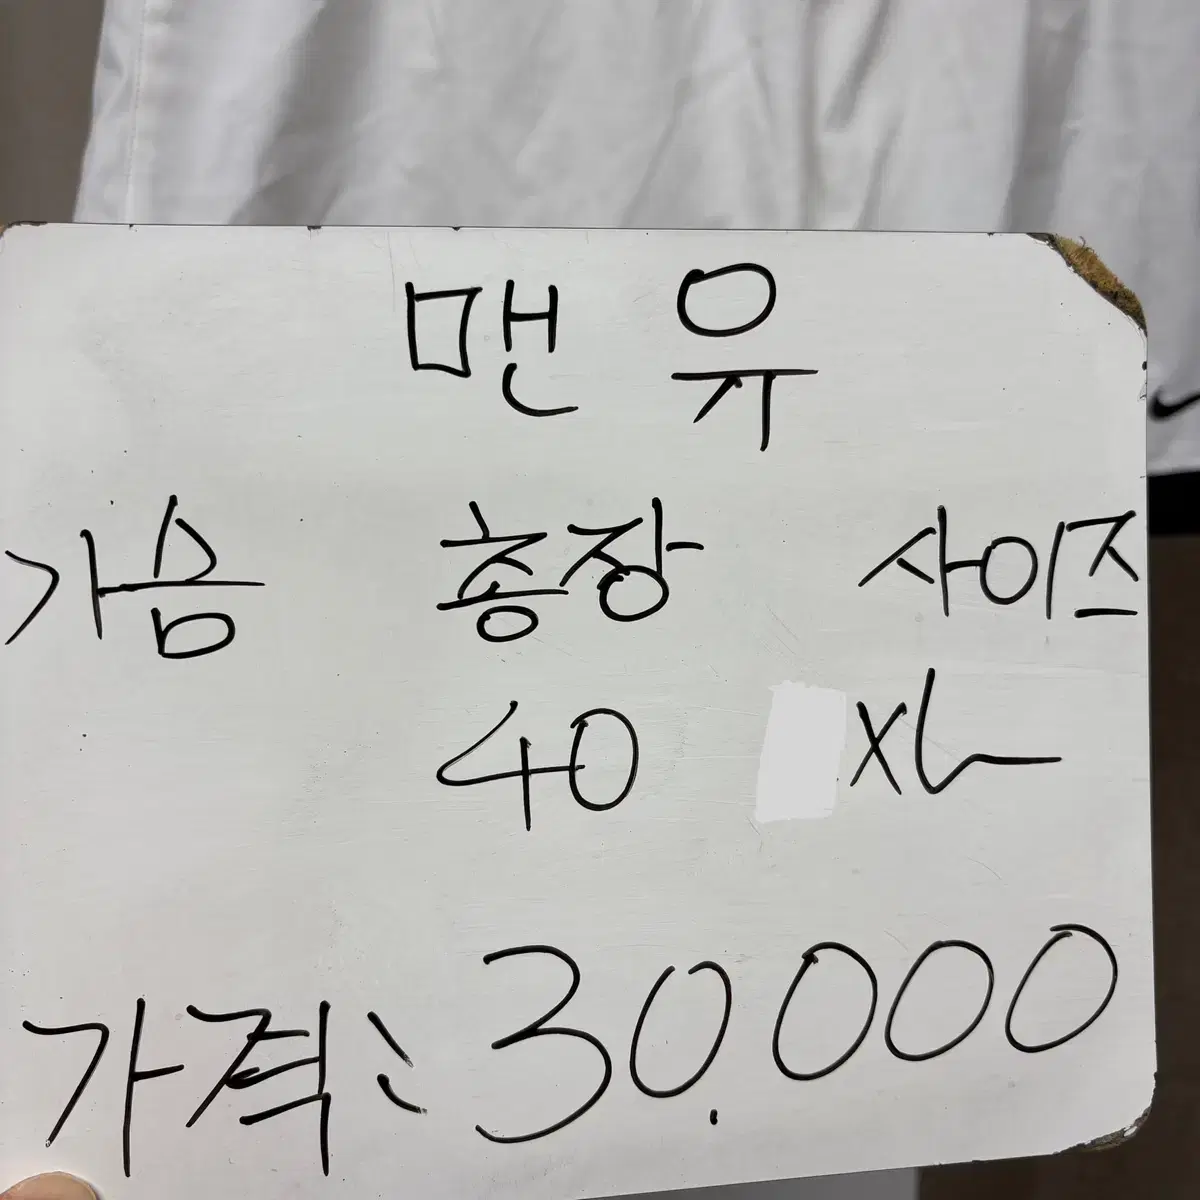 맨유
가슴 총장 사이즈
40 XL
가격: 30.000